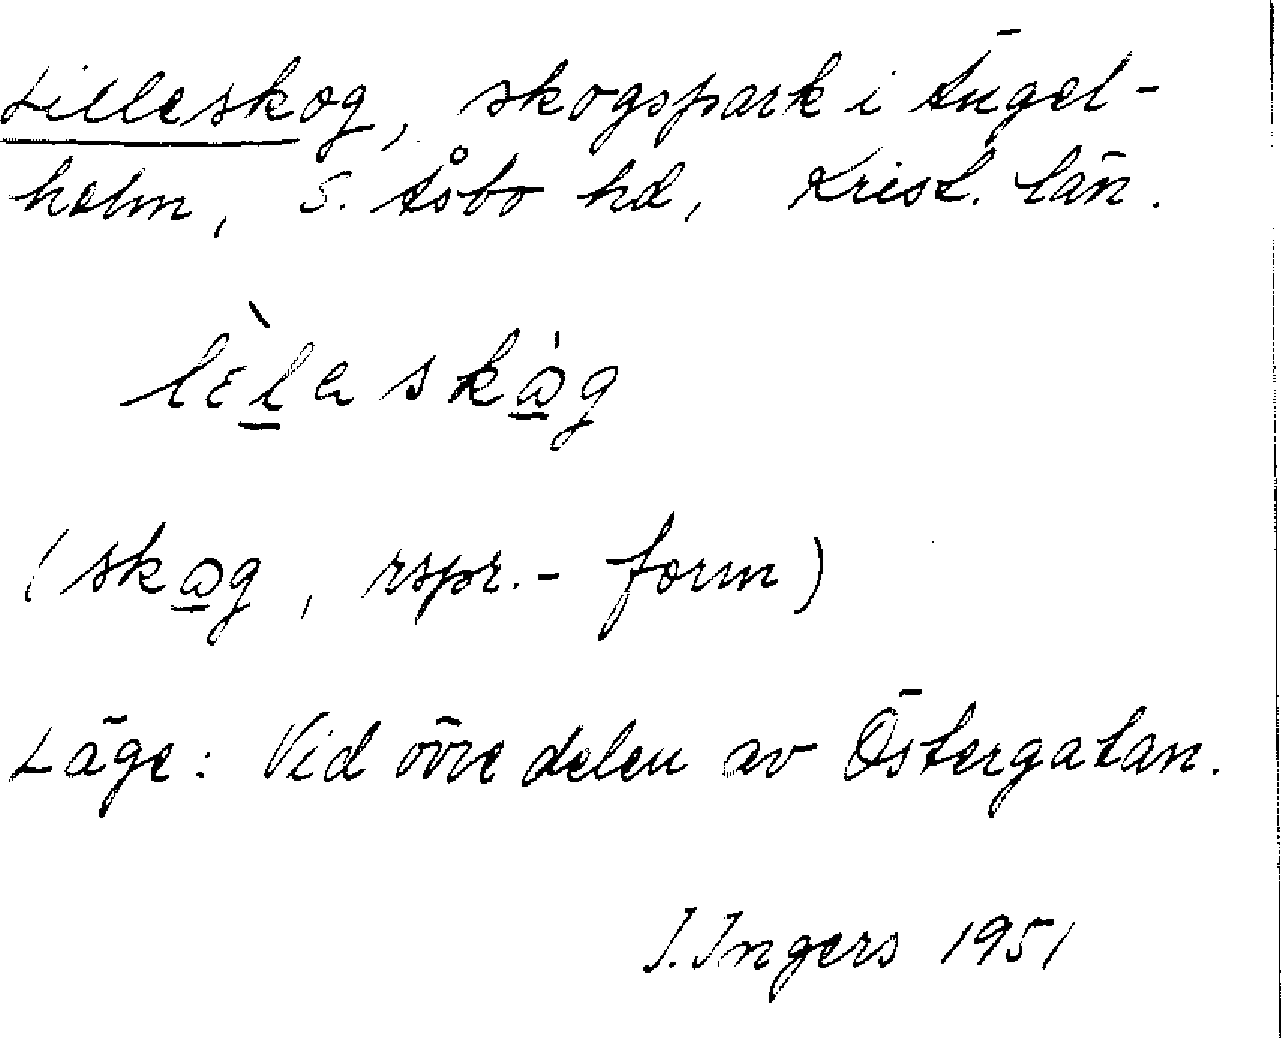 Lilleskog, skogspark i Ängel-
holm, S. Åsbo hd, Krist. län.
lɛ̀la skág
(skag, rspr.-form)
Läge: Vid övre delen av Östergatan.
I. Ingers 1951